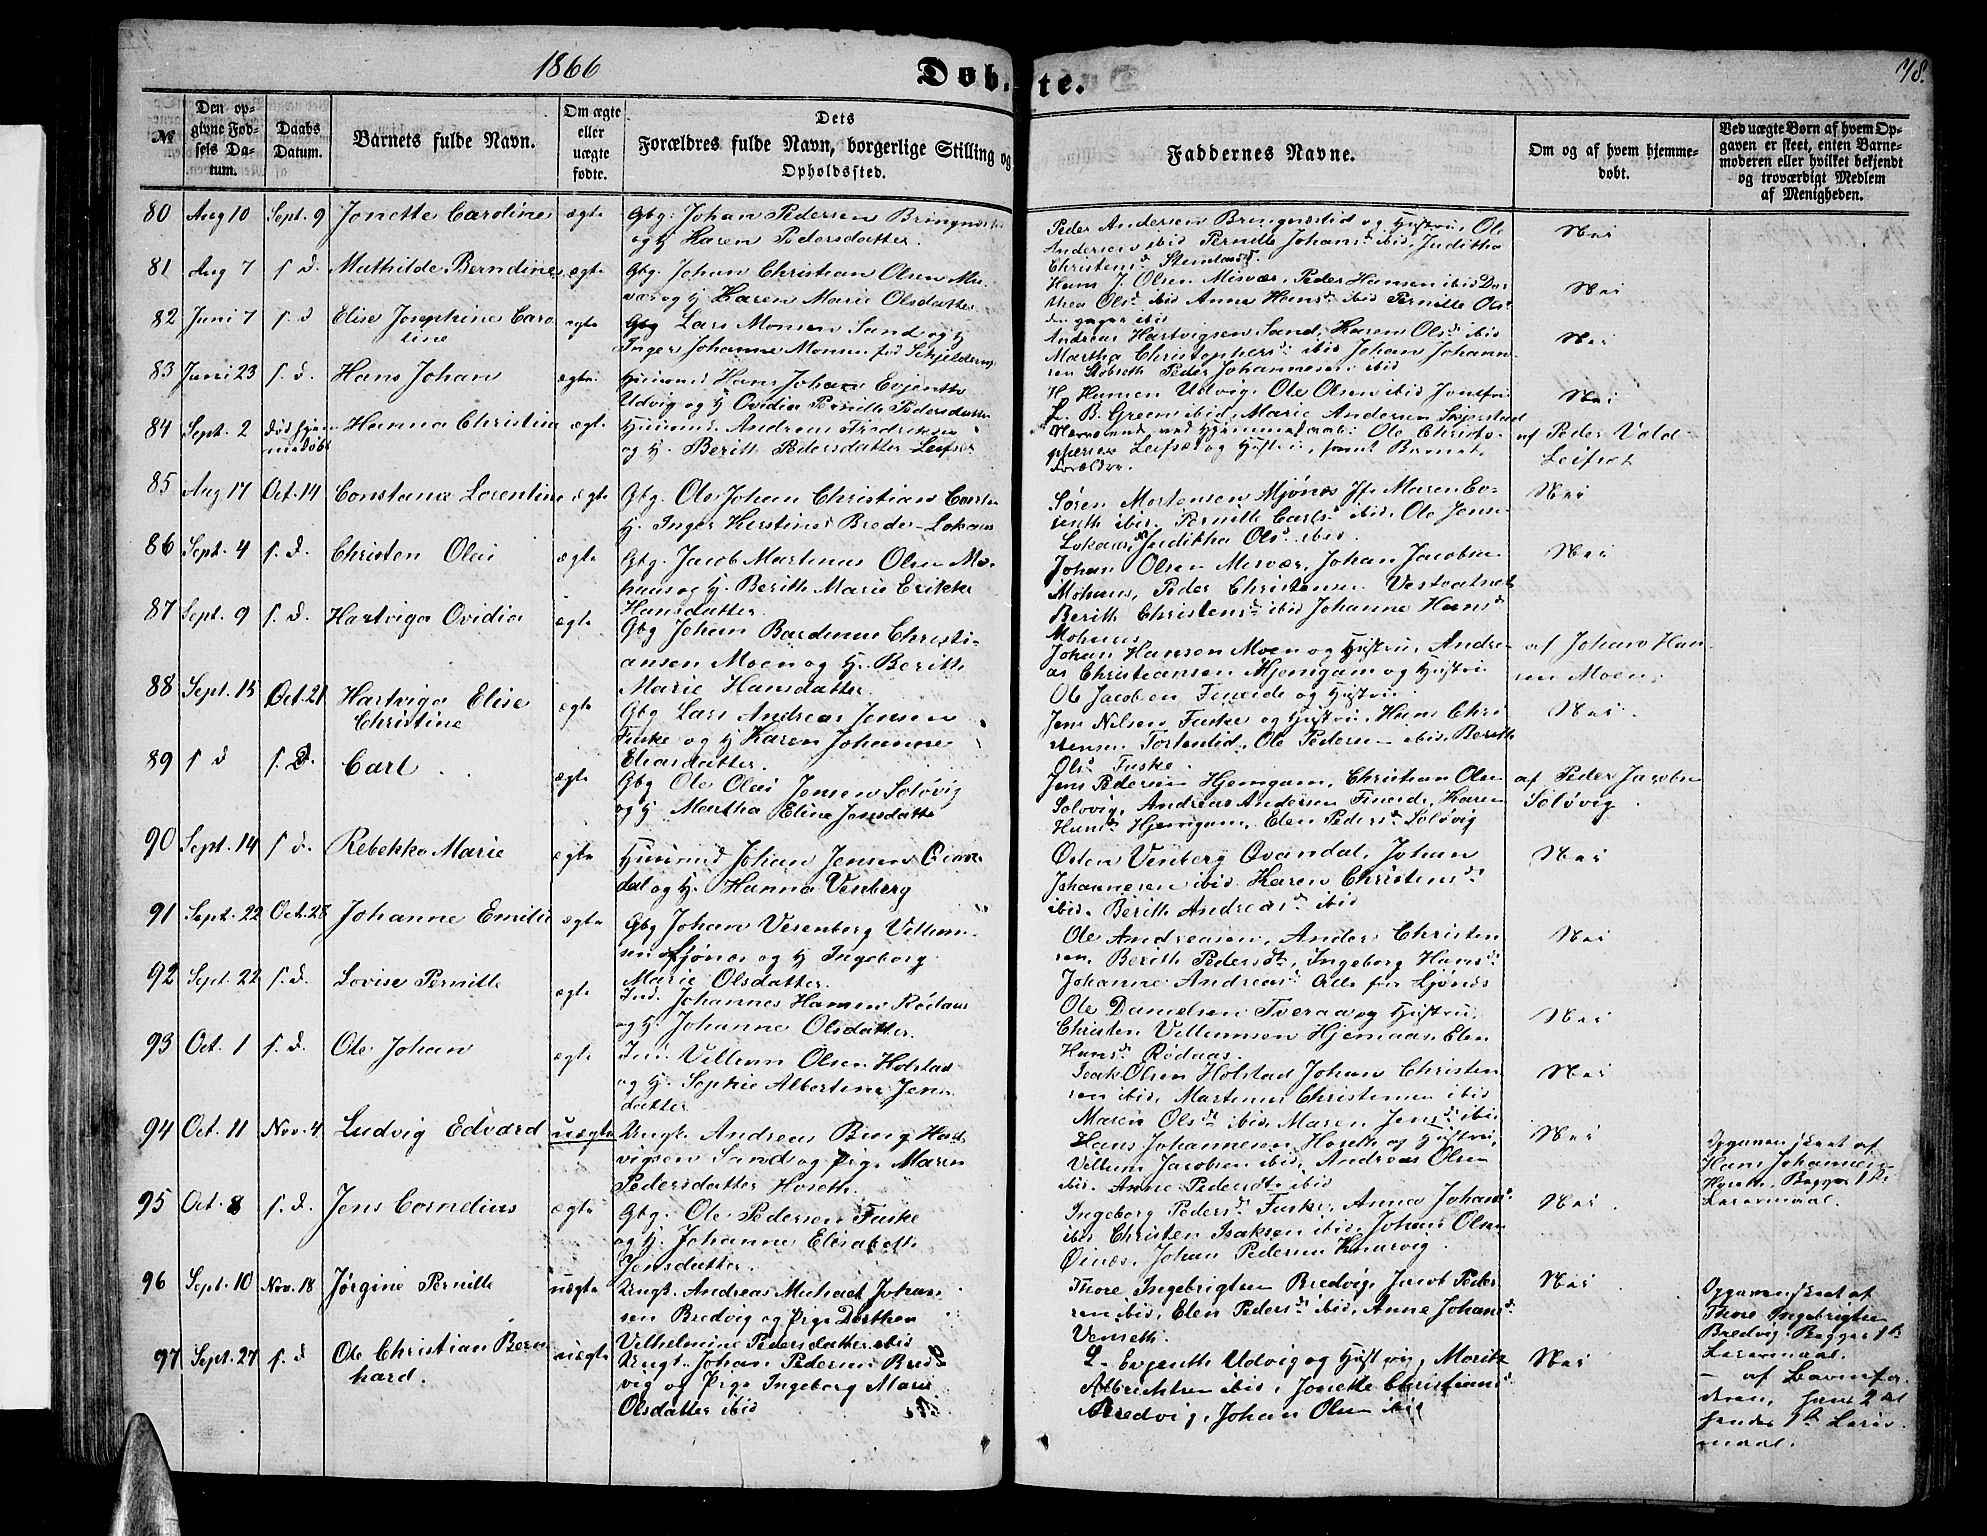 1866
Døbte.
78.
№
Den op-
givne Fød-
sels Da-
tum.
Daabs
Datum.
Barnets fulde Navn.
Om ægte
eller
uægte
fødte.
Dets
Forældres fulde Navn, borgerlige Stilling og
Opholdssted.
Faddernes Navne.
Om og af hvem hjemme-
døbt.
Ved uægte Børn af hvem Op-
gaven er skeet, enten Barne-
moderen eller hvilket bekjendt
og troværdigt Medlem
af Menigheden.
80 Aug 10 Sept. 9 Jonette Caroline ægte
Gbg. Johan Pedersen
og H Karen Pedersdatter.
Peder Andersen Bringnæslid og Hustru, Ole
Andersen ibid Pernille Johansd ibid, Juditha
Christensd
Nei
81 Aug 7 s. d. Mathilde Berndine ægte
Gbg. Johan Christian Olsen Mis-
vær og H Karen Marie Olsdatter
Hans J. Olsen Misvær, Peder Hansen ibid Dor-
thea Olsd ibid Anne Hansd ibid Pernille Olsd
ibid
Nei
82 Juni 7 s. d Elise Josephine Caro
line
ægte
Gbg Lars Monsen Sand og H
Inger Johanne Monsen
Andreas Hartvigsen Sand, Karen Olsd ibid
Martha Christophersd ibid Johan Johann-
sen Peder Johannesen ibid
Nei
83 Juni 23 s. d. Hans Johan ægte
Huusmd Hans Johan Evjenth
Udvig og H Ovidia Pernille Pedersdatter
H. Hansen Udvig, Ole Olsen ibid
L. B. Green ibid, Marie Andersen
Nei
84 Sept. 2 Hanna Christina ægte
Huusmd. Andreas Fredriksen
og H. Berith Pedersdatter Leifset
ved Hjemmedaab: Ole Christo-
phersen Leifset og Hustru, samt Barnets
Forældre.
af Peder Vold-
Leifset
85 Aug 17 Oct. 14 Constance Lorentine ægte
Gbg. Ole Johan Christian
H. Inger Kerstine Breder Lokaas
Søren Mortensen Mjønes Jfr Maren Ev-
jenth ibid. Pernille Carlsd ibid, Ole Jens-
Lokaas, Juditha Olsd ibid
Nei
86 Sept. 4 s. D. Christen Olai ægte
Gbg. Jacob Martinus Olsen Mo-
haus og H. Berith Marie Erikke
Hansdatter.
Johan Olsen Misvær, Johan Jacobsen
Mohaus, Peder Christensen Vestvatnet
Berith Christensd ibid Johanne Hansd
Mohaus
Nei
87 Sept. 9 s. D. Hartviga Ovidia ægte
Gbg Johan Bardinus Christi-
ansen Moen og H. Berith
Marie Hansdatter.
Johan Hansen Moen og Hustru, Andre-
as Christiansen Hjemgam og Hustru
Ole Jacobsen Fineide og Hustru.
af Johan Han
sen Moen,
88 Sept. 15 Oct. 21 Hartviga Elise
Christine
ægte
Gbg Lars Andreas Jensen
Fuske og H Karen Johanne
Eliasdatter.
Jens Nilsen Fuske og Hustru, Hans Chri
stensen Tortenlid, Ole Pedersen ibid, Berith
Olsd Fuske.
Nei.
89 s d s. D. Carl ægte
Gbg Ole Olai Jensen Soløvig
og H Martha Eline Jonsdatter
Jens Pedersen Hjemgam, Christian Olsen
Soløvig, Andreas Andersen Fineide, Karen
Hansd Hjemgam, Elen Pedersd Soløvig
af Peder Jacobsen
Soløvig.
90 Sept. 14 s. d. Rebekka Marie ægte
Huusmd Johan Jensen
dal og H. Hanna Venberg
Osten Venberg Qvandal, Johan
Johannesen ibid Karen Christensd
ibid. Berith Andreasd ibid
Nei
91 Sept. 22 Oct. 28 Johanne Emilie ægte
Gbg Johan Vesenberg Villum-
sen Ljønes og H Ingeborg
Marie Olsdatter.
Ole Andreasen, Anders Christen
sen, Berith Pedersdt, Ingeborg Hansd
Johanne Andreasd Alle fra Ljønes
Nei
92 Sept. 22 s. D. Lovise Pernille ægte
Ind. Johannes Hansen Rødaas
og H. Johanne Olsdatter.
Ole Danielsen Tveraa og Hustru,
Christen Villumsen Hjemaas, Elen
Hansd Rødaas.
Nei
93 Oct. 1 s. d. Ole Johan ægte
Ind. Villum Olsen Holstad
og H. Sophie Albertine Jens
datter
Isak Olsen Holstad Johan Christen
sen ibid, Martinus Christensen ibid
Maren Olsd ibid, Maren Jensd ibid
Nei
94 Oct. 11 Nov. 4 Ludvig Edvard uægte
Ungk. Andreas Berg Hart
vigsen Sand og Pige Maren
Pedersdatter Horseth.
Hans Johannesen Horseth og Hustru,
Villum Jacobsen ibid, Andreas Olsen
ibid. Anne Pedersdt ibid
Nei
Opgaven skeet af
Hans Johannesen
Horseth. Begges 1ste
Leiermaal.
95 Oct. 8 s. D. Jens Cornelius ægte
Gbg. Ole Pedersen Fuske
og H. Johanne Elisabeth
Jensdatter.
Ingeborg Pedersd Fuske, Anna Johansd
ibid Christen Isaksen ibid, Johan Olsen
Øines, Johan Pedersen Knarvig
Nei
96 Sept. 10 Nov. 18 Jørgine Pernille uægte
Ungk. Andreas Michael Johan
sen Bredvig og Pige Dorthea
Vilhelmine Pedersdatter ibid
Thore Ingebrigtsen Bredvig, Jacob Peder
sen ibid, Elen Pedersd ibid, Anne Johansd
Venseth.
Nei
Opgaven skeet af
Thore Ingebrigtsen
Bredvig Begges 1ste
Leiermaal.
97 Sept. 27 s. d Ole Christian Bern
hard.
uægte
Ungk. Johan Pedersen Bred
vig og Pige Ingeborg Marie
Olsdatter ibid
L. Evjenth Udvig og Hustru, Moritz
Albrichtsen ibid, Jonette Christiansd
Bredvig, Johan Olsen ibid
Nei
– af Barnefa-
deren, hans 2det
hendes 1ste Leier
maal.